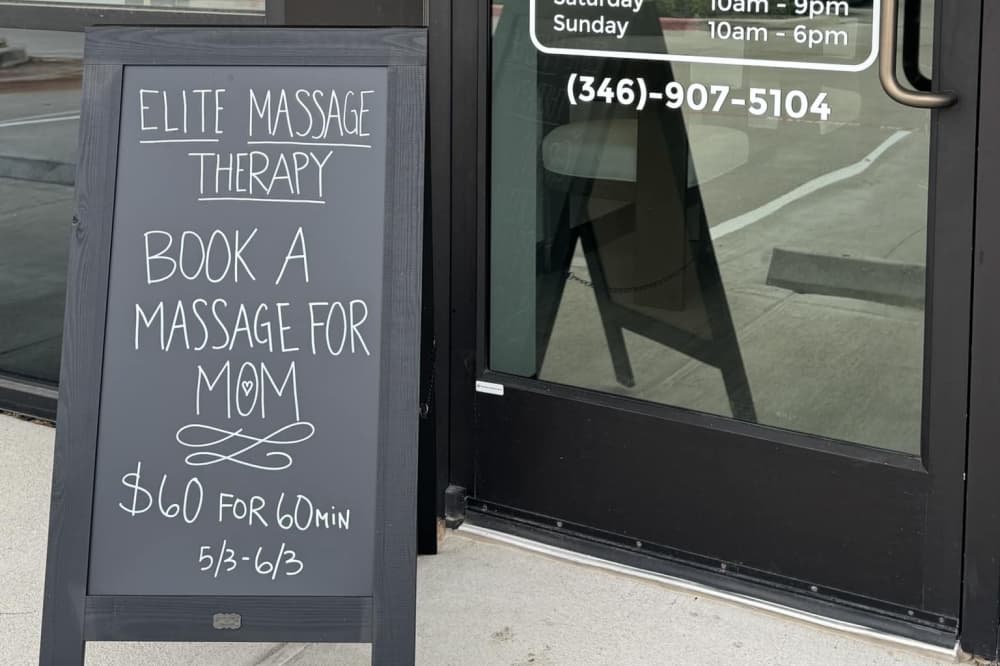 ELITE MASSAGE
THERAPY
BOOK A
MASSAGE FOR
MOM
$60 FOR 60MIN
5/3-6/3
Saturday 10am - 9pm
Sunday 10am - 6pm
(346)-907-5104